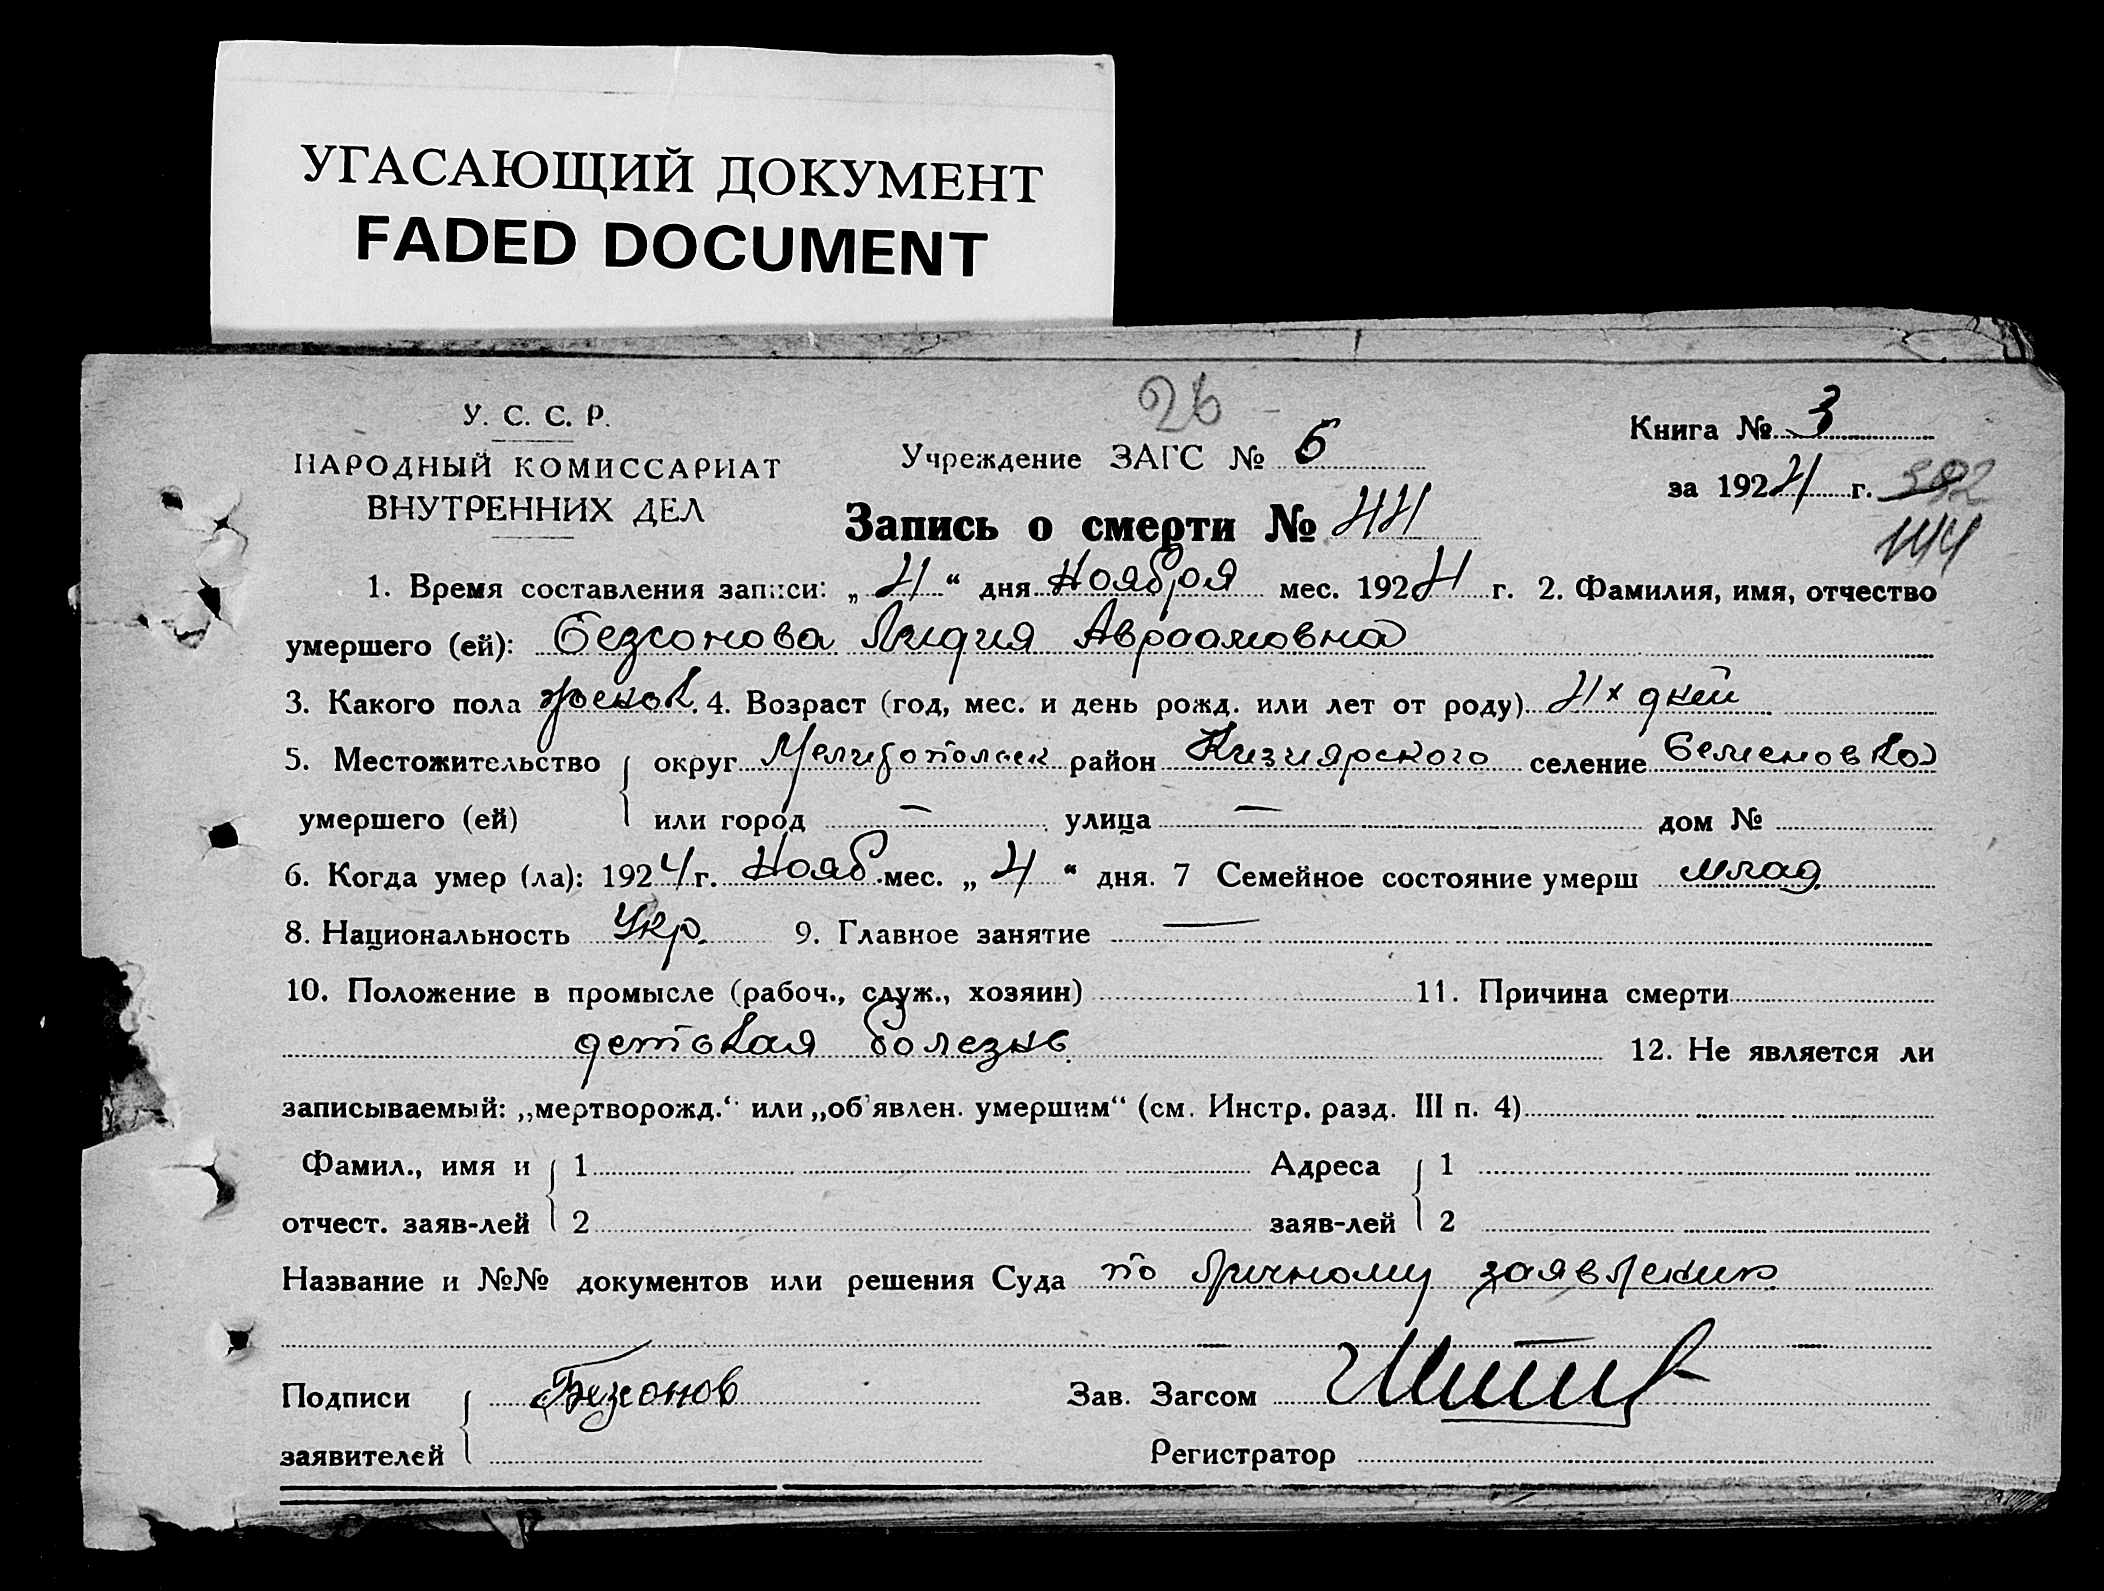 УГАСАЮЩИЙ ДОКУМЕНТ
FADED DOCUMENT
26
У. С. С. Р.
НАРОДНЫЙ КОМИССАРИАТ
ВНУТРЕННИХ ДЕЛ
Учреждение ЗАГС № 6
Книга № 3
за 1924 г. 392
144
Запись о смерти № 44
1. Время составления записи: „ 4 “ дня Ноября мес. 1924 г. 2. Фамилия, имя, отчество
умершего (ей): Безсонова Лидия Авраамовна
3. Какого пола женск. 4. Возраст (год, мес. и день рожд. или лет от роду) 4х дней
5. Местожительство округ Мелитопольск район Кизиярского селение Семеновка
умершего (ей) или город — улица — дом №
6. Когда умер (ла): 1924 г. Нояб. мес. „ 4 “ дня. 7 Семейное состояние умерш млад
8. Национальность Укр. 9. Главное занятие —
10. Положение в промысле (рабоч., служ., хозяин) 11. Причина смерти
детская болезнь. 12. Не является ли
записываемый: „мертворожд.“ или „об'явлен. умершим“ (см. Инстр. разд. III п. 4)
Фамил., имя и 1 Адреса 1
отчест. заяв-лей 2 заяв-лей 2
Название и №№ документов или решения Суда по личному заявлению
Подписи Безсонов Зав. Загсом
заявителей Регистратор